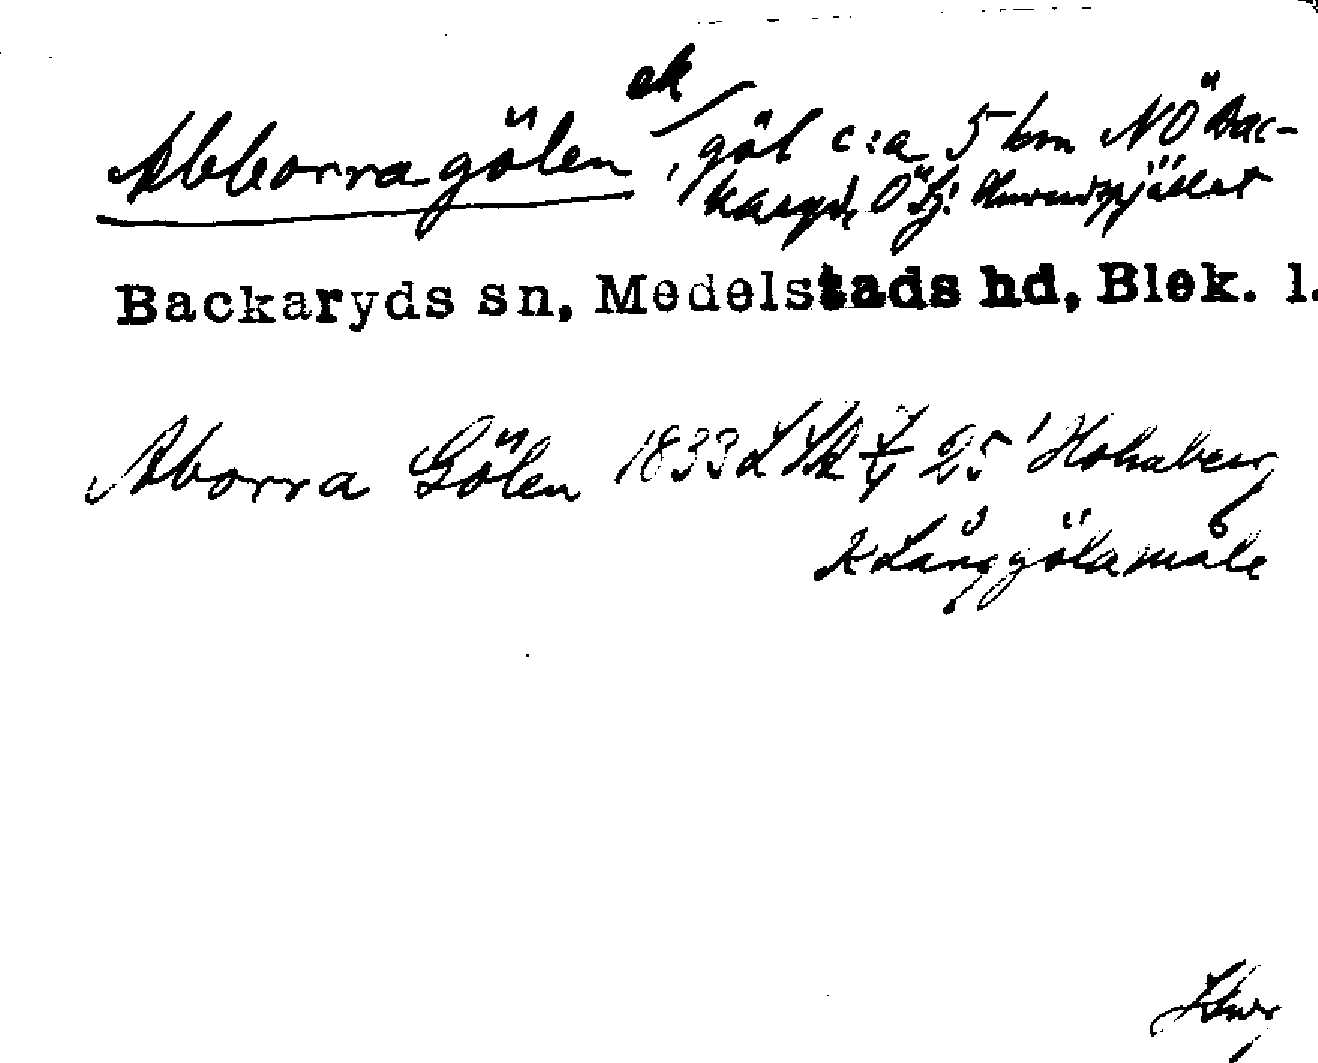 ek
Abborragölen, göl c:a 5 km NÖ Bac-
karyd, Ö
Backaryds sn, Medelstads hd, Blek. l.
Aborra Gölen 1833 LSk 25 Hohaberg
K Långgölamåla